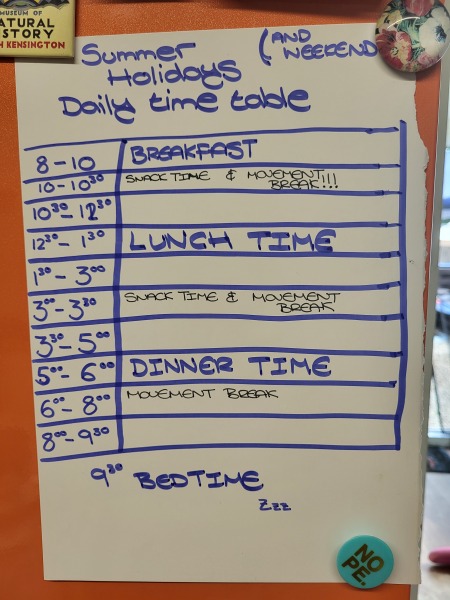 MUSEUM OF
NATURAL
HISTORY
H KENSINGTON
Summer (AND
Holidays WEEKEND
Daily time table
8-10 BREAKFAST
10-10³⁰ SNACK TIME & MOVEMENT
BREAK!!!
10³⁰-12³⁰
12³⁰-1³⁰ LUNCH TIME
1³⁰-3⁰⁰
3⁰⁰-3³⁰ SNACK TIME & MOVEMENT
BREAK
3³⁰-5⁰⁰
5⁰⁰-6⁰⁰ DINNER TIME
6⁰⁰-8⁰⁰ MOVEMENT BREAK
8⁰⁰-9³⁰
9³⁰ BEDTIME
Zzz
NO
PE.